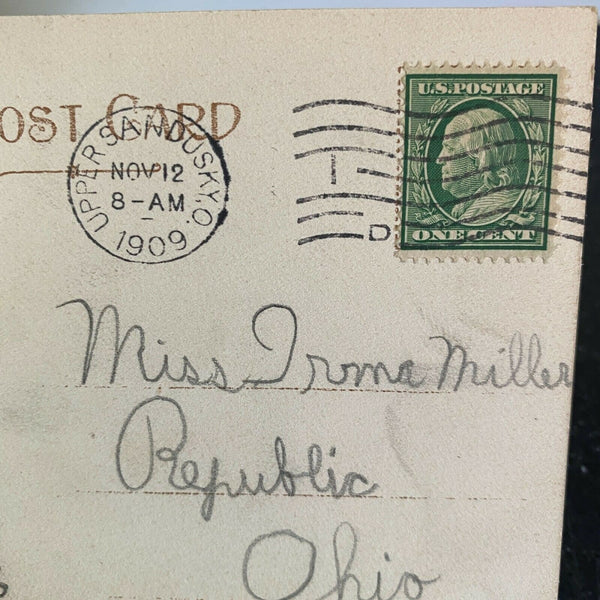 OST CARD
UPPER SANDUSKY, O.
NOV 12
8-AM
1909
1
D
U.S. POSTAGE
ONE CENT
Miss Irma Miller
Republic
Ohio